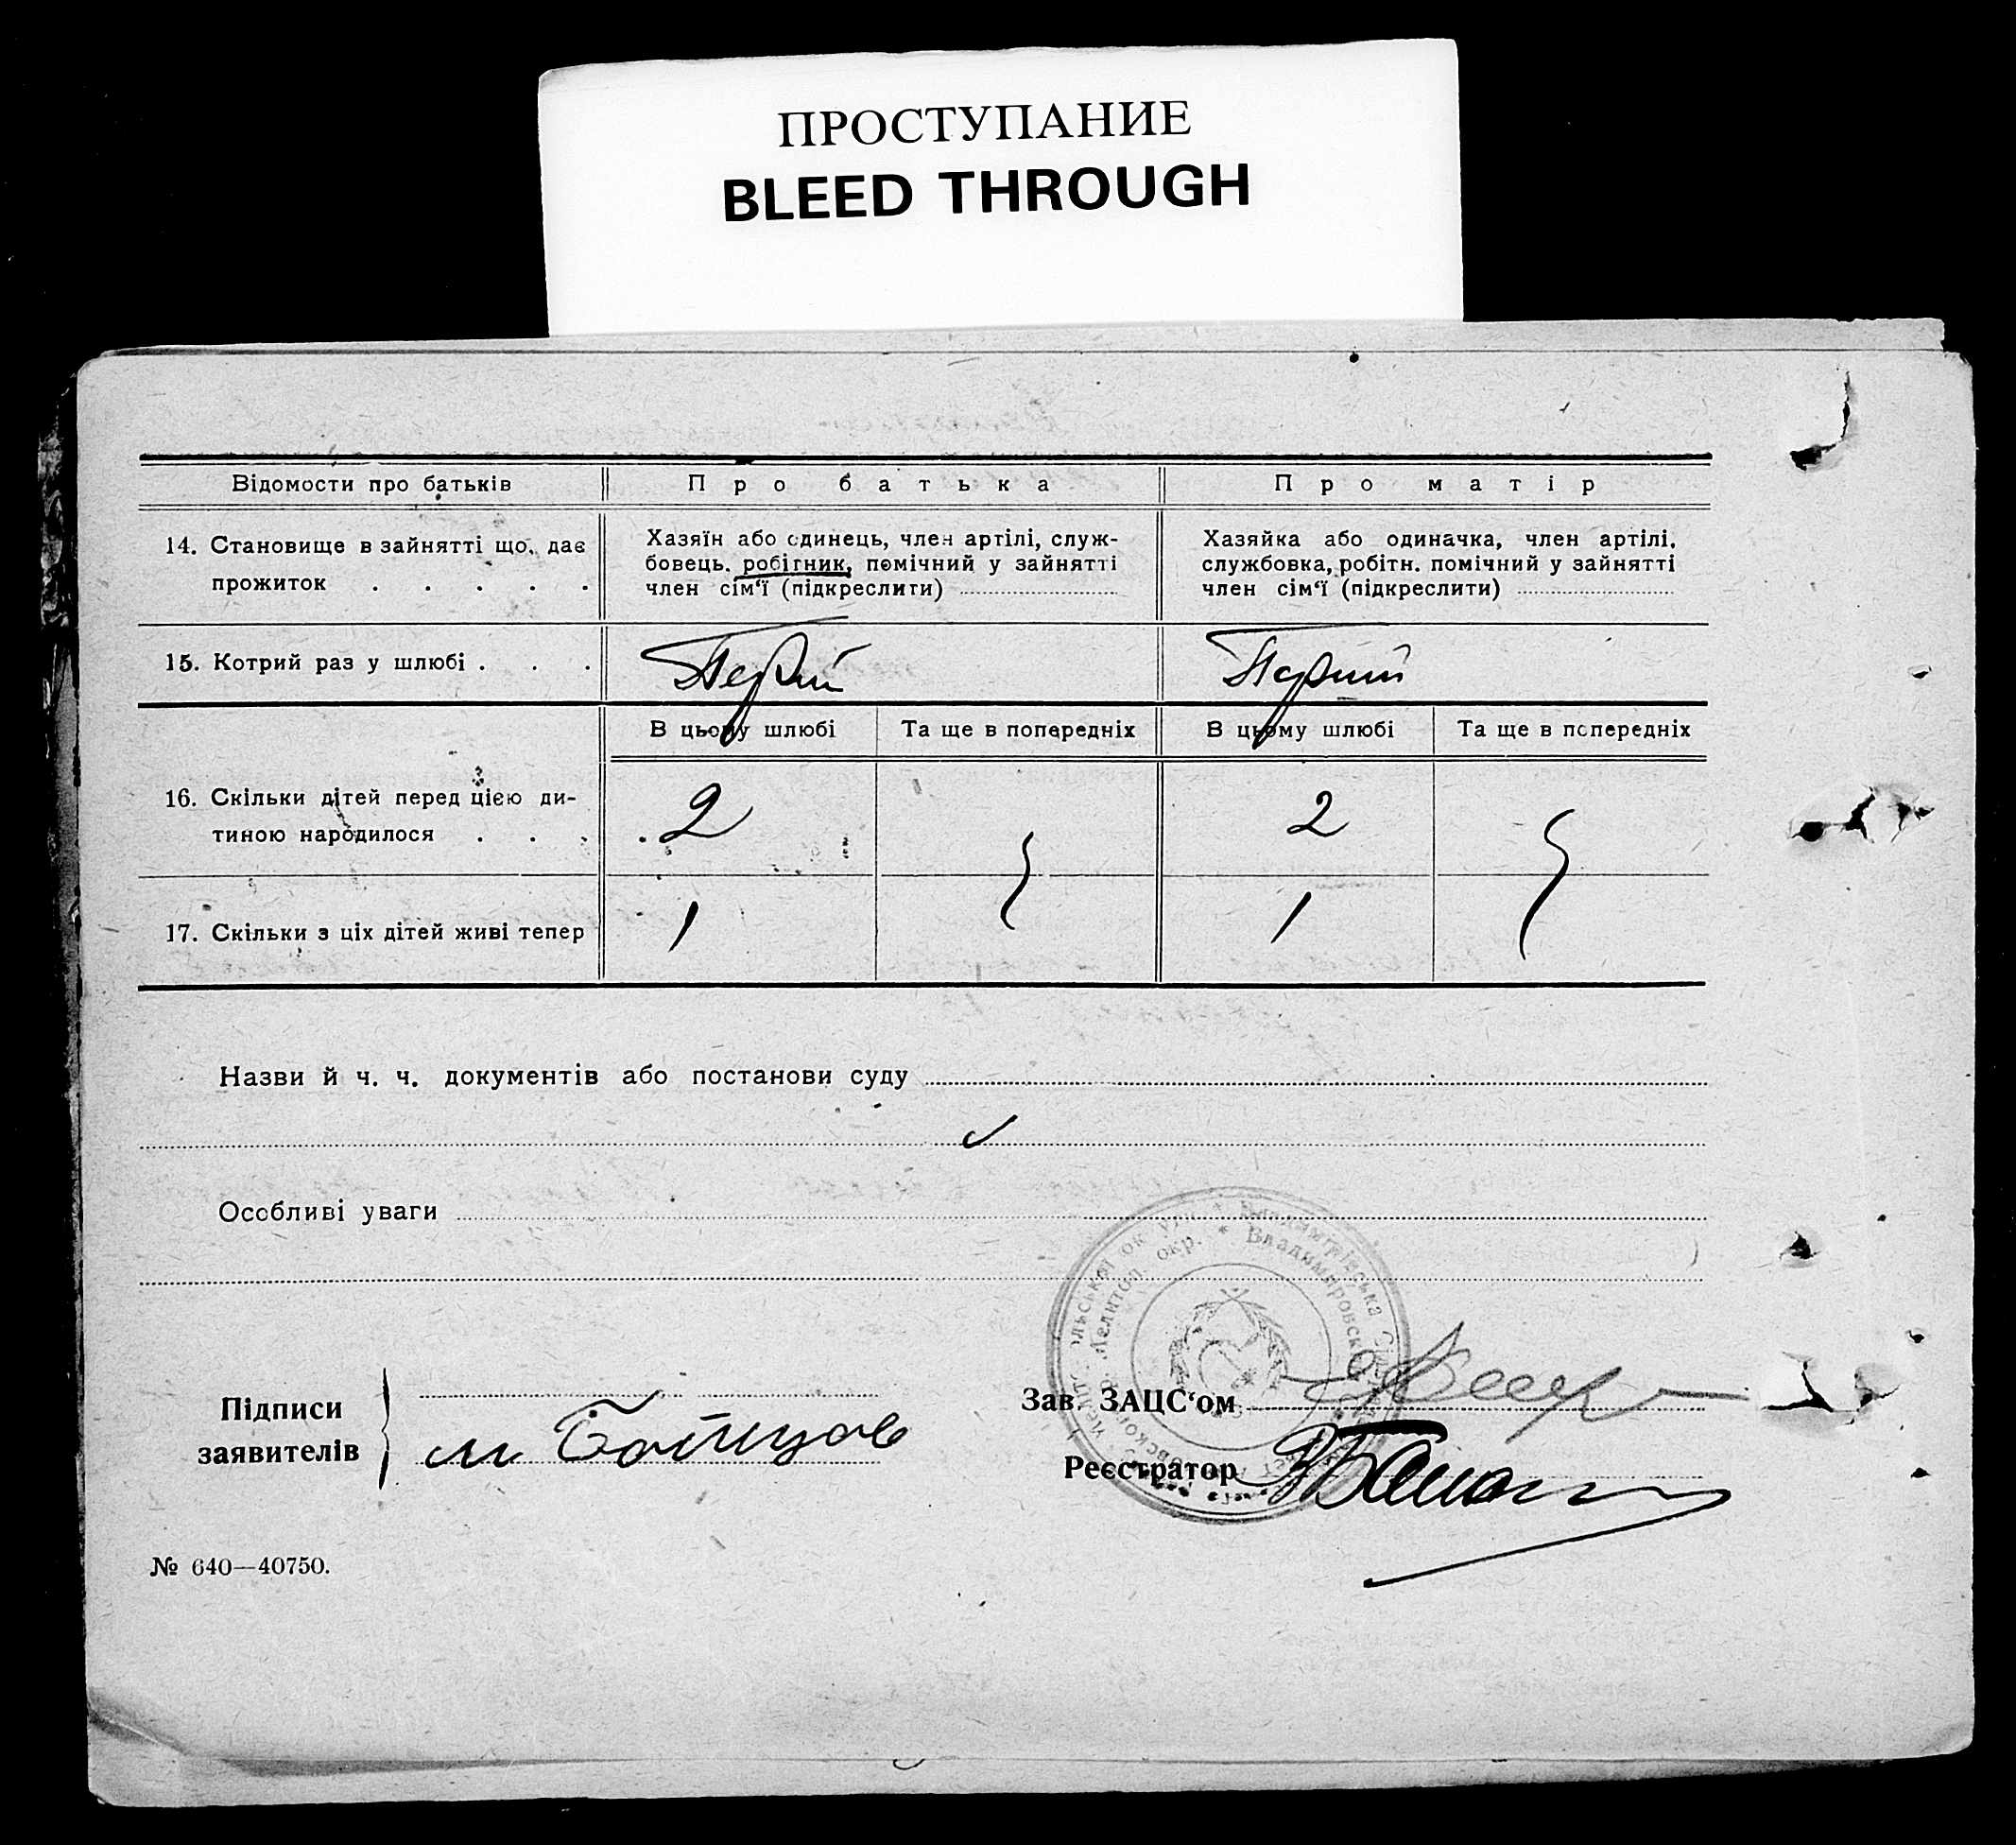 ПРОСТУПАНИЕ
BLEED THROUGH
Відомости про батьків
Про батька
Про матір
14. Становище в зайнятті що дає
прожиток . . . . .
Хазяїн або одинець, член артілі, служ-
бовець, робітник, помічний у зайнятті
член сім‘ї (підкреслити)
Хазяйка або одиначка, член артілі,
службовка, робітн. помічний у зайнятті
член сім‘ї (підкреслити)
15. Котрий раз у шлюбі . . .
Перший
В цьому шлюбі
Та ще в попередніх
В цьому шлюбі
Та ще в попередніх
16. Скільки дітей перед цією ди-
тиною народилося . . .
2
2
17. Скільки з ціх дітей живі тепер
1
1
Назви й ч. ч. документів або постанови суду
Особливі уваги
Підписи
заявителів
Зав. ЗАЦС‘ом
Реєстратор
№ 640—40750.